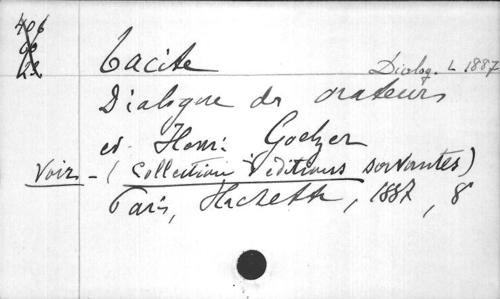 406
Tacite
Dialog. L 1887
Dialogue des orateurs
ed. Henri Goelzer
Voir - (Collection d'editions savantes)
Paris, Hachette, 1887, 8°